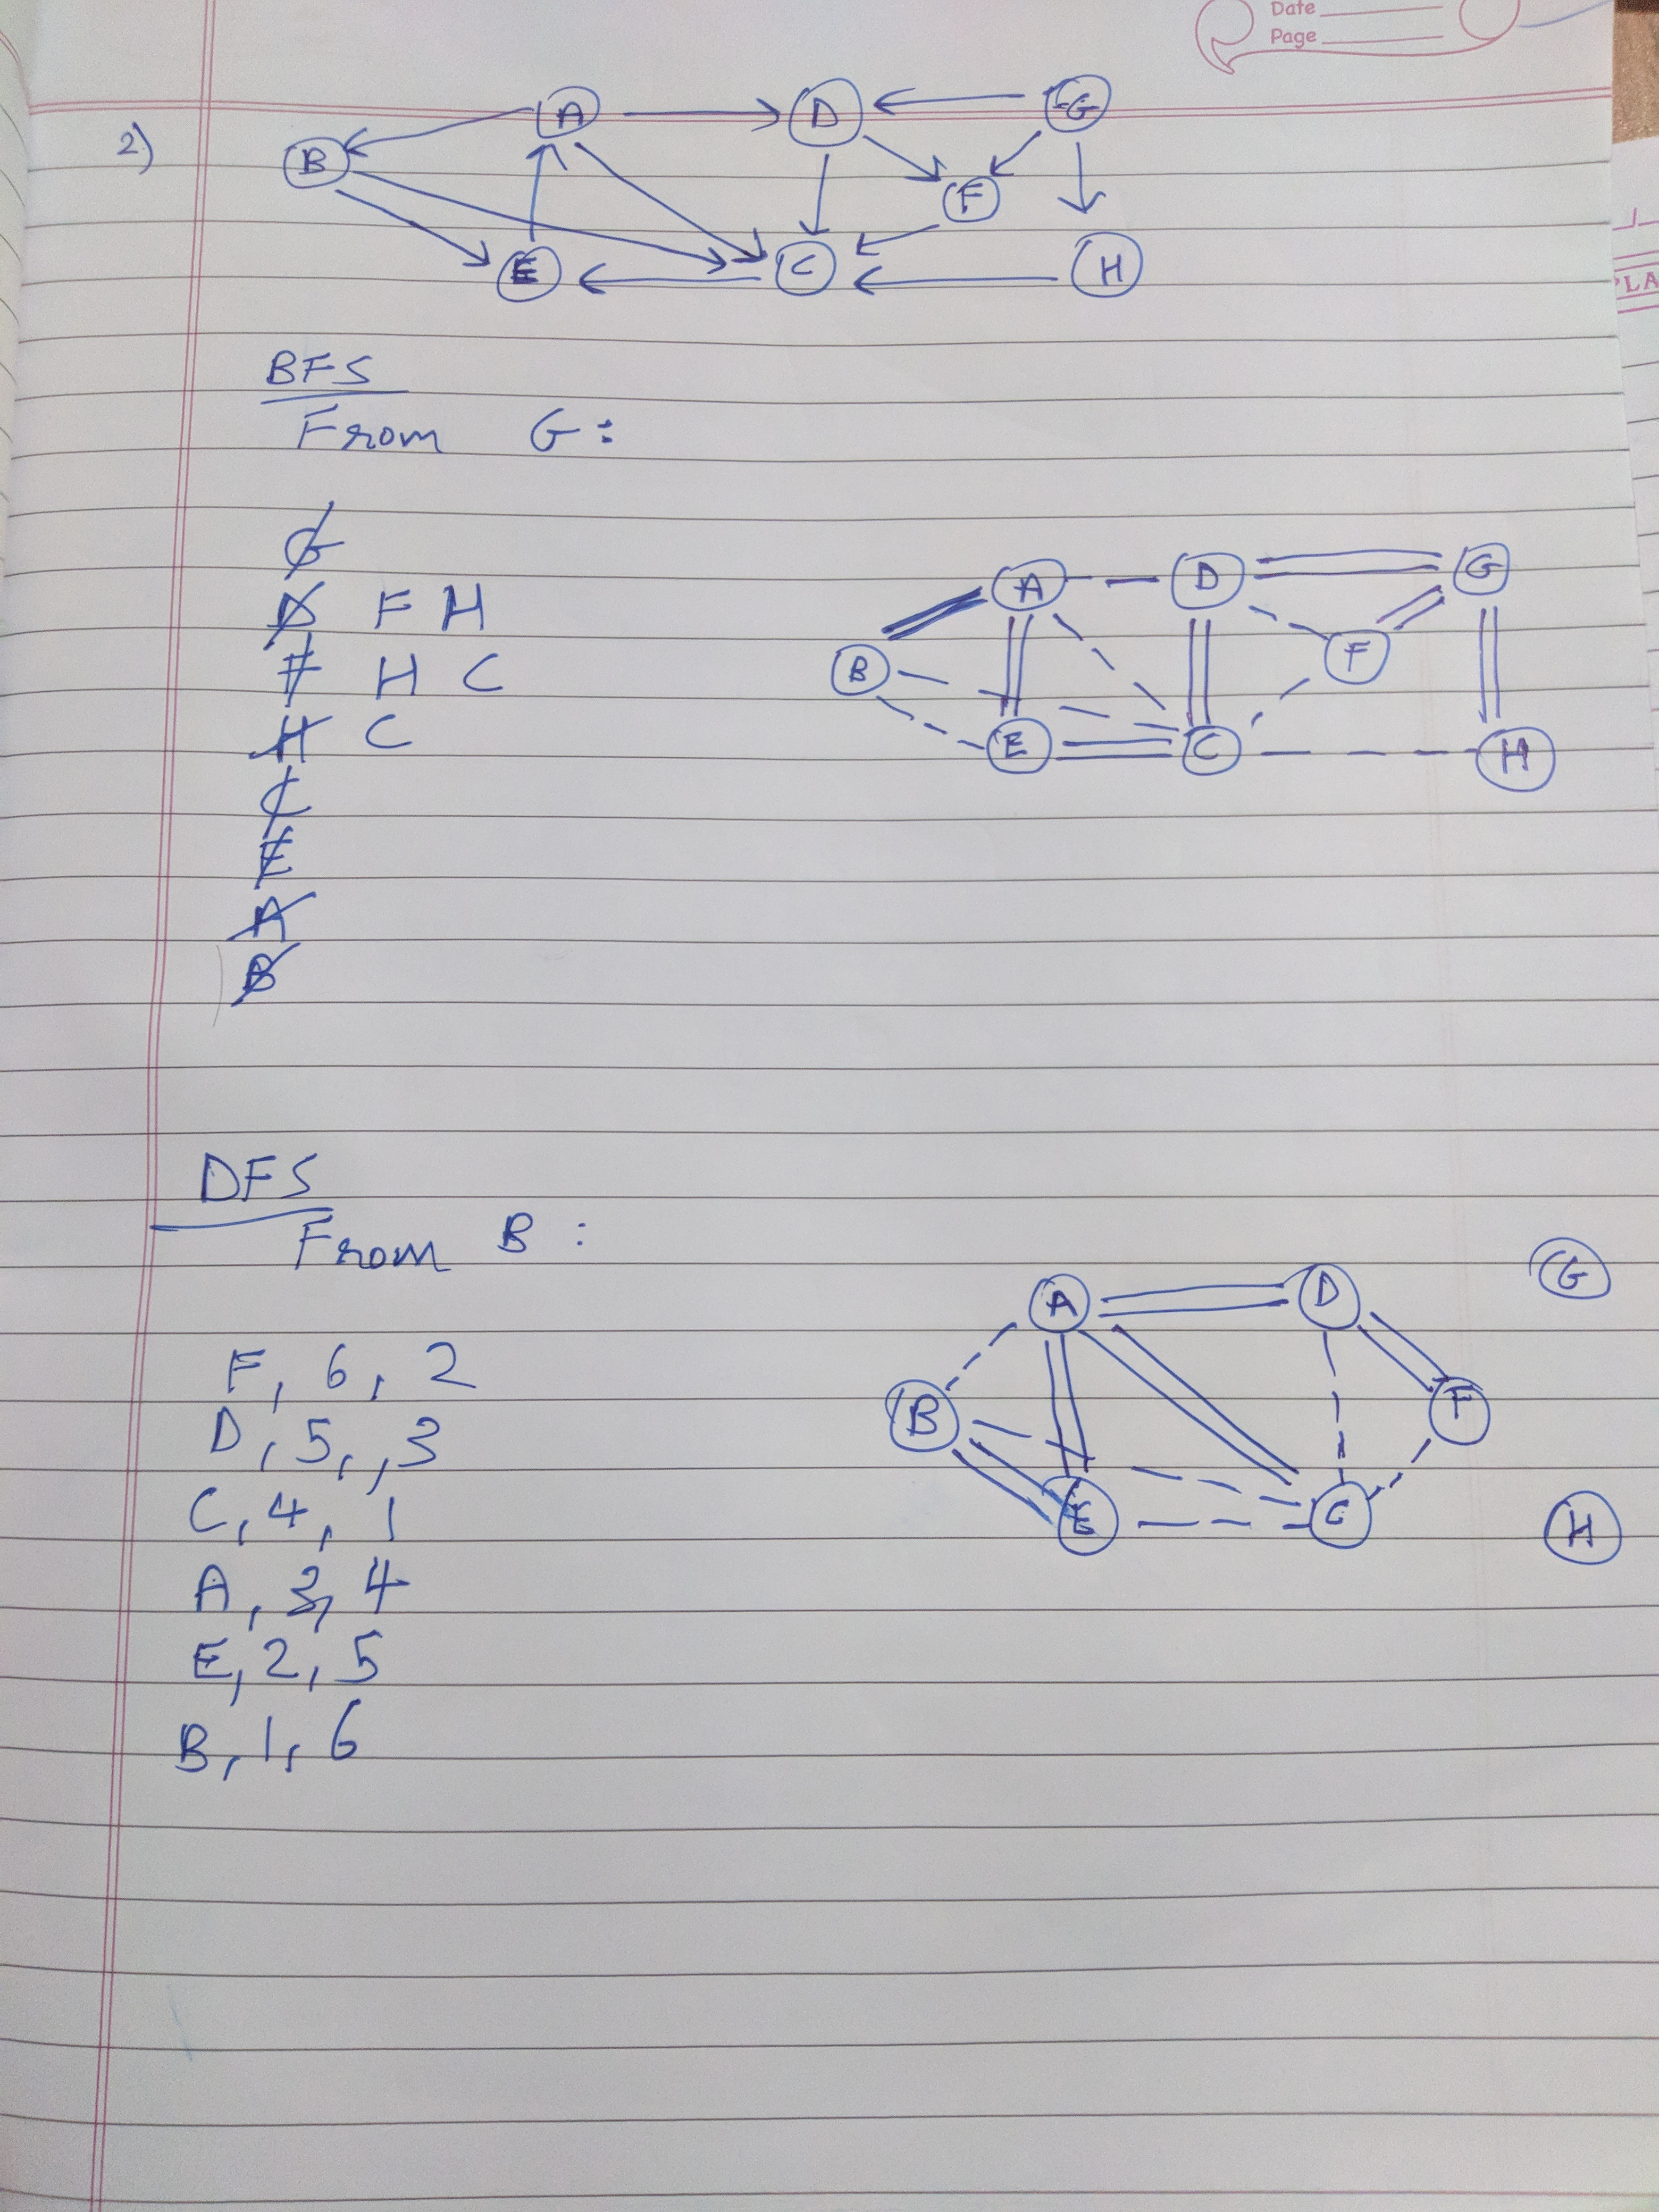 Date
Page
2)
A D G
B
F
E C H
PLA
BFS
From G:
G
D F H
F H C
H C
C
E
A
B
A D G
B F
E C H
DFS
From B :
F, 6, 2
D, 5,, 3
C, 4, 1
A, 3, 4
E, 2, 5
B, 1, 6
A D G
B F
E C H